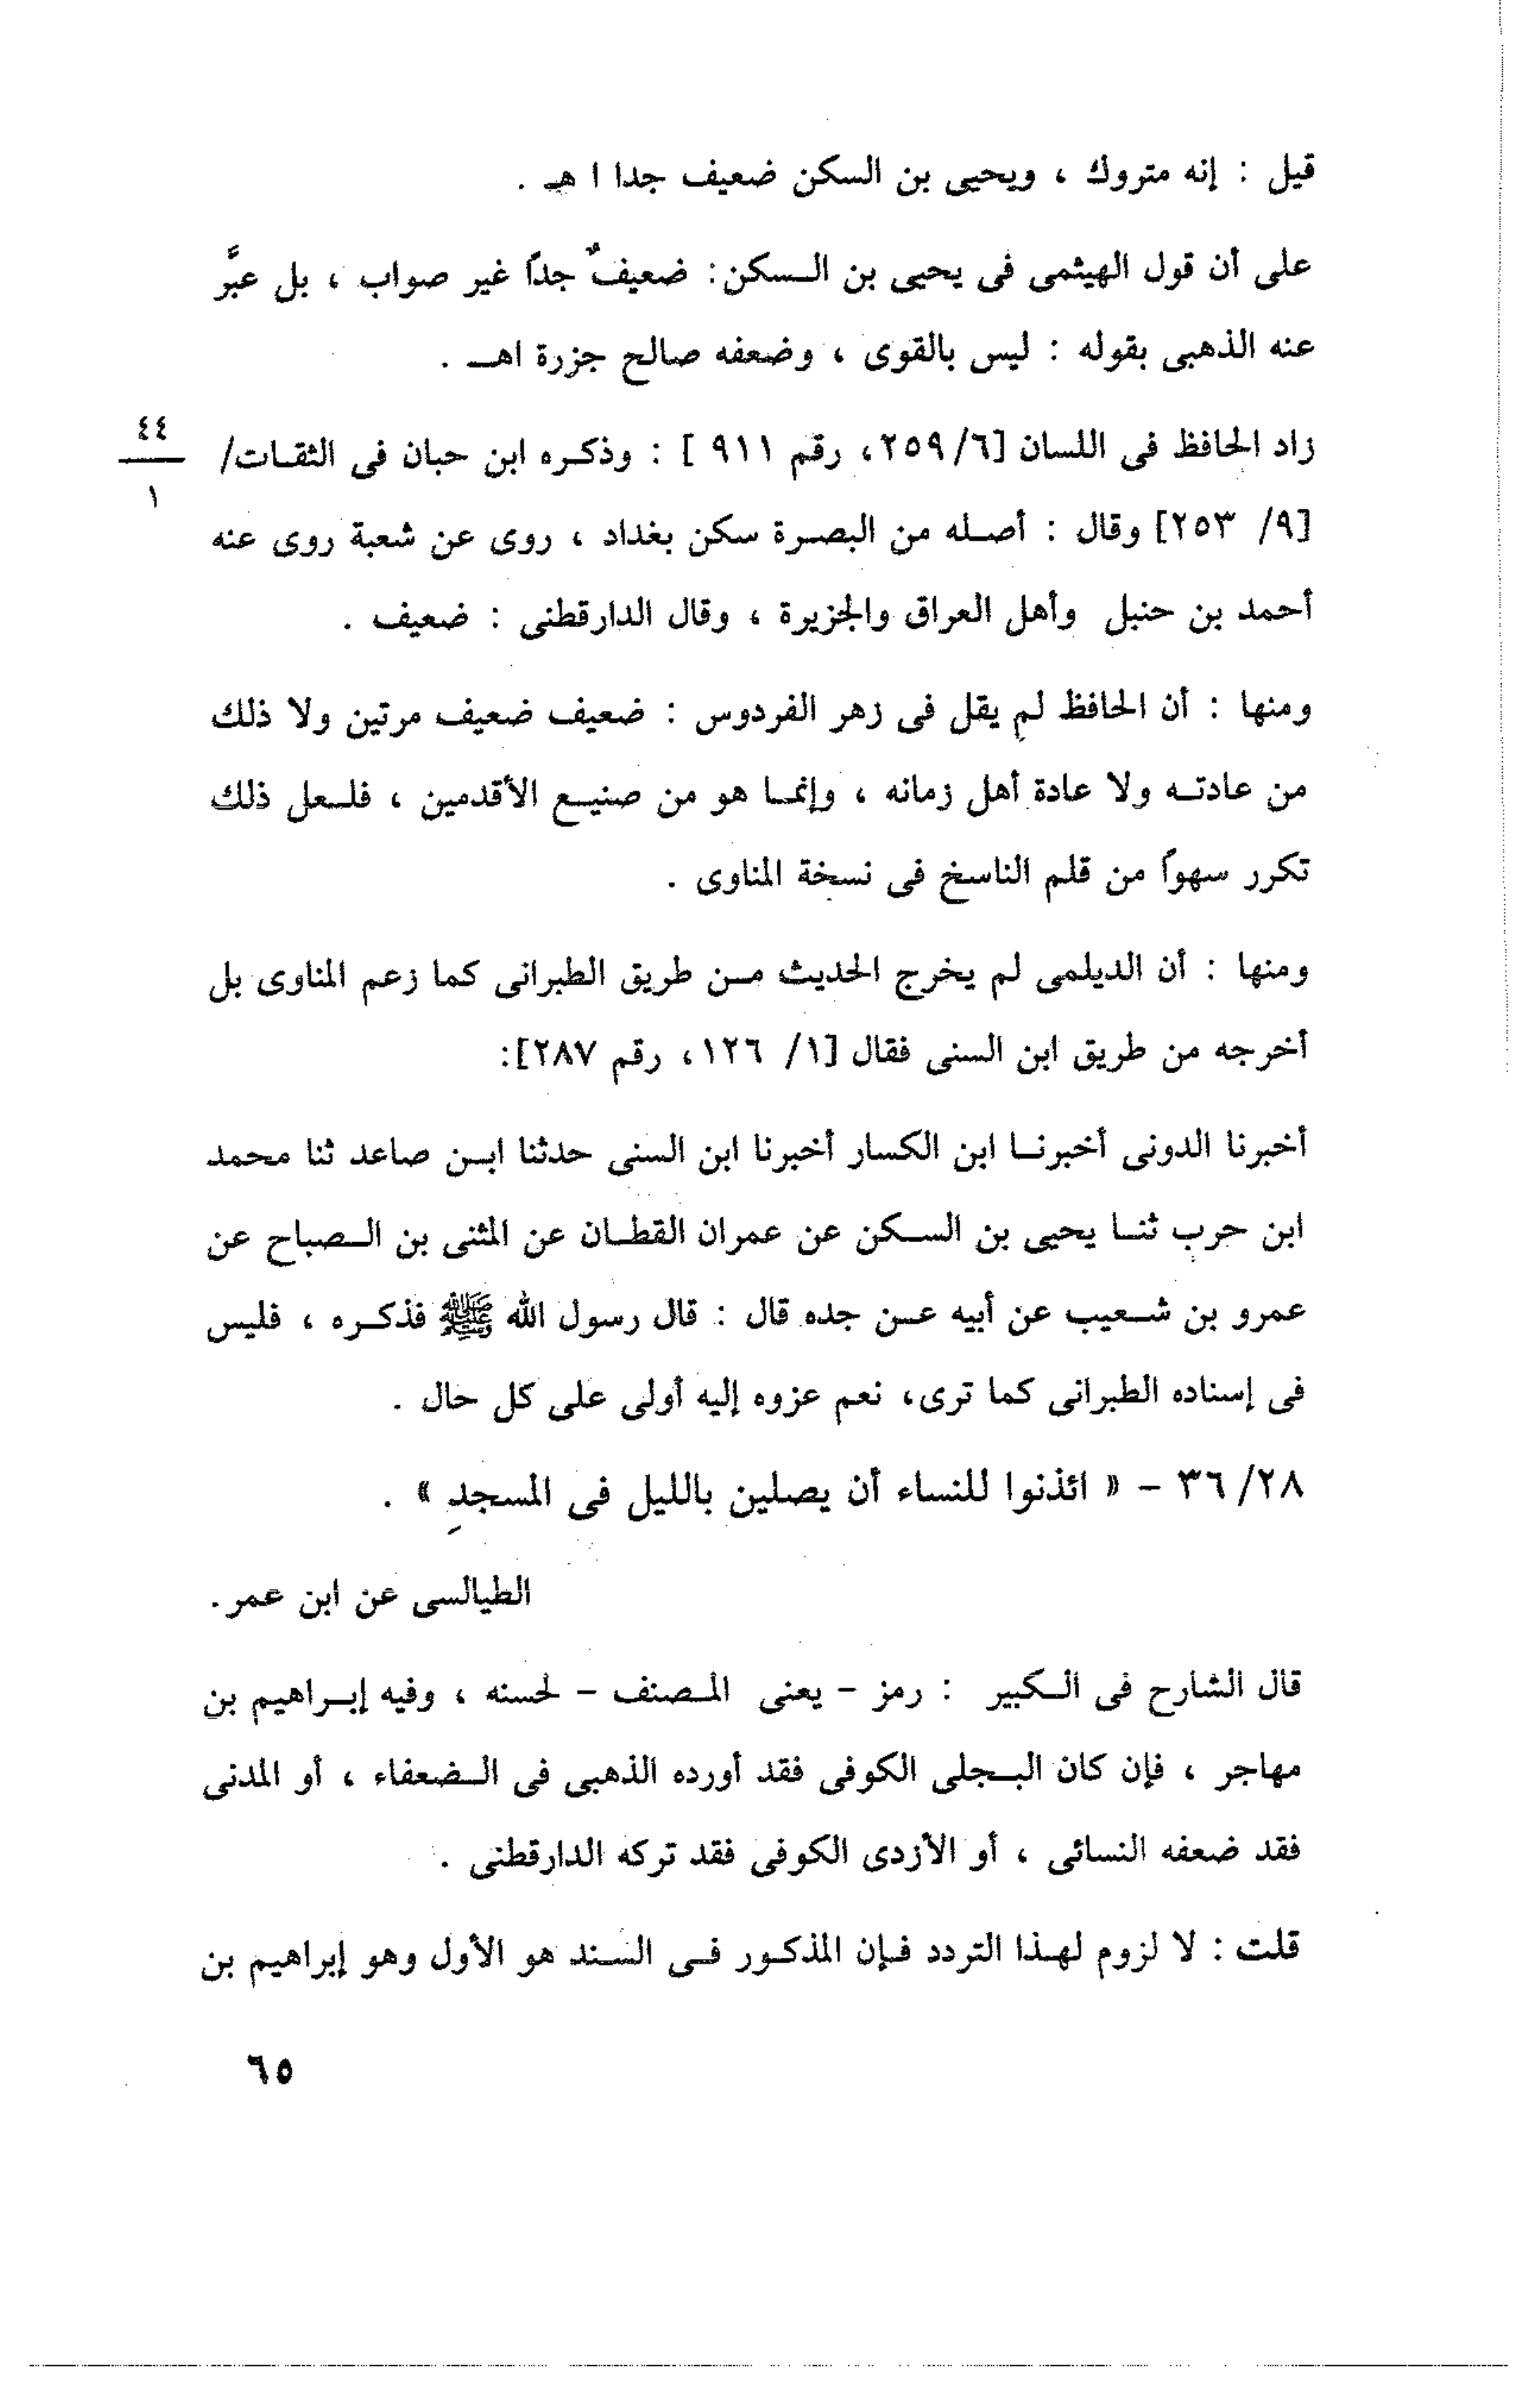 قيل : إنه متروك ، ويحيى بن السكن ضعيف جدا ا هـ .
على أن قول الهيثمى فى يحيى بن السكن: ضعيفٌ جدًا غير صواب ، بل عبَّر
عنه الذهبى بقوله : ليس بالقوى ، وضعفه صالح جزرة اهـ .
زاد الحافظ فى اللسان [٦/ ٢٥٩، رقم ٩١١ ] : وذكره ابن حبان فى الثقات/
٤٤
١
[٩/ ٢٥٣] وقال : أصله من البصرة سكن بغداد ، روى عن شعبة روى عنه
أحمد بن حنبل وأهل العراق والجزيرة ، وقال الدارقطنى : ضعيف .
ومنها : أن الحافظ لم يقل فى زهر الفردوس : ضعيف ضعيف مرتين ولا ذلك
من عادته ولا عادة أهل زمانه ، وإنما هو من صنيع الأقدمين ، فلعل ذلك
تكرر سهوًا من قلم الناسخ فى نسخة المناوى .
ومنها : أن الديلمى لم يخرج الحديث من طريق الطبرانى كما زعم المناوى بل
أخرجه من طريق ابن السنى فقال [١/ ١٢٦، رقم ٢٨٧]:
أخبرنا الدونى أخبرنا ابن الكسار أخبرنا ابن السنى حدثنا ابن صاعد ثنا محمد
ابن حرب ثنا يحيى بن السكن عن عمران القطان عن المثنى بن الصباح عن
عمرو بن شعيب عن أبيه عن جده قال : قال رسول الله ﷺ فذكره ، فليس
فى إسناده الطبرانى كما ترى، نعم عزوه إليه أولى على كل حال .
٢٨/ ٣٦ – « ائذنوا للنساء أن يصلين بالليل فى المسجدِ » .
الطيالسى عن ابن عمر.
قال الشارح فى الكبير : رمز – يعنى المصنف – لحسنه ، وفيه إبراهيم بن
مهاجر ، فإن كان البجلى الكوفى فقد أورده الذهبى فى الضعفاء ، أو المدنى
فقد ضعفه النسائى ، أو الأزدى الكوفى فقد تركه الدارقطنى .
قلت : لا لزوم لهذا التردد فإن المذكور فى السند هو الأول وهو إبراهيم بن
٦٥